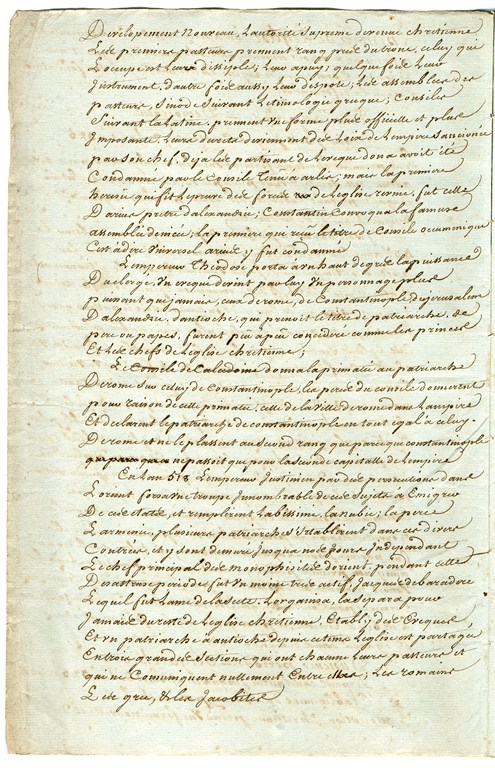 Dévelopement Nouveau, Lautorité Supreme devenue chretienne
Les premiers pasteurs prennent rang pres du trone, celuy qui
Loccupe est Leurs dissiple; Leur apuy; quelque fois Leur
Instrument, dautre fois aussy Leur despote; Les assemblées des
pasteurs, Sinodes Suivant Letimologie grecque; Consiles
Suivant la Latine, prennent une forme plus officielle et plus
Imposante, Leurs decrets deviennent des Loix de Lempire Sanctionée
par Son chef, deja Les partisans de Leveque donat avoit été
Condamné par le Consile Tenu a arles; mais la premiere
heresie qui fit Lepreuve des forces de Leglise reunie, fut celle
Darius pretre dalexandrie; Constantin Convoqua la fameuse
assemblée de nicée; la premiere qui recut le titre de Consile oecumenique
Cest adire Universel arius y fut condamné
Lempereur Théodose porta a un haut degré la puissance
Du clergé, Un eveque devint par luy Un personnage plus
puissant que jamais, ceux de rome, de Constantinople de jerusalem
Dalexandrie, dantioche, qui prenoit le titre de patriarche, de
pere ou papes, furent peu a peu consideré comme les princes
Et Les chefs de Leglise chretienne;
Le Consile de Calcedoine donna la primatie au patriarche
De rome Sur celuy de Constantinople, les peres du consile donnerent
pour raison de cette primatie, celle de la ville de rome dans Lampire
Et declarent le patriarche de constantinople en tout egal a celuy
De rome et ne le plassent au Second rang que parce que constantinople
ne passoit que pour la Seconde capitalle de Lempire
En Lan 518 Lempereur Justinien par des persecutions dans
Lorient força Une troupe Innombrable de ces Sujets a Emigrer
De ces etats, et remplirent Labissinie, la nubie, la perse
Larmenie, plusieurs patriarches Setablirent dans ces divers
Contrées, et y sont demuré Jusqua nos Jours Independant
Le chef principal des monophisites dorient, pendant cette
Desastreuse periode fut Un moine tres actif, Jacques de baradée
Lequil fut Lame de la Secte, Lorganisa, la Separa pour
Jamais du reste de Leglise chretienne, Etabli des Eveques
Et un patriarche a antioche depuis ce tems Leglise est partagée
En trois grandes Sections qui ont chacune Leurs pasteurs et
qui ne Comuniquent nullement Entre elles; Les romains
Les grec, & les Jacobites